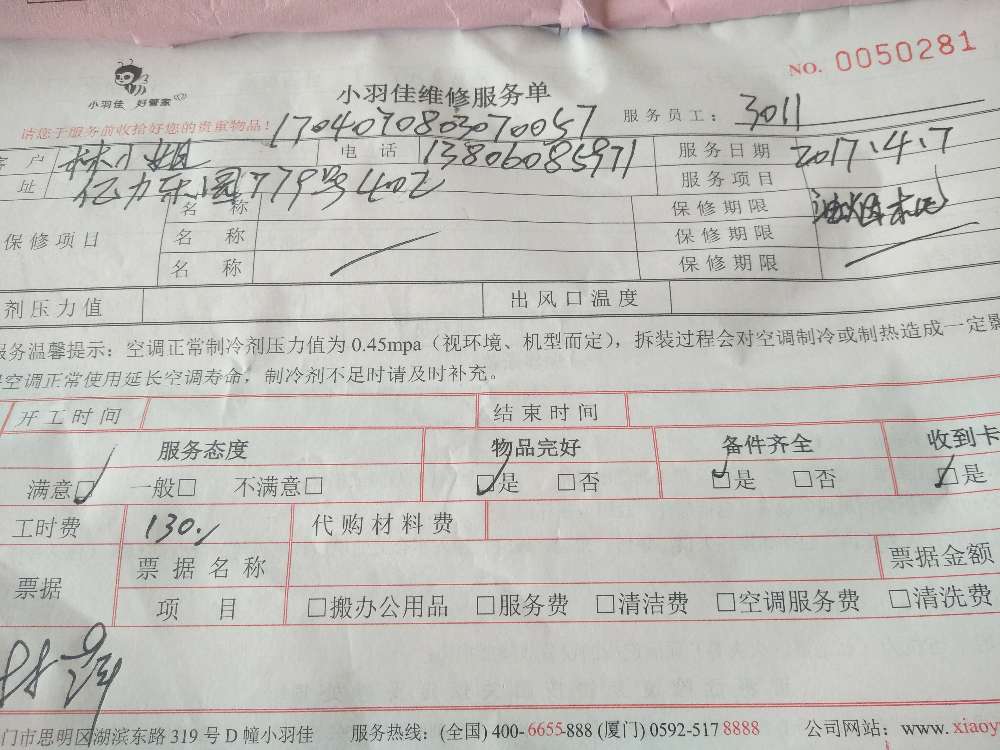 NO. 0050281
小羽佳 好管家
小羽佳维修服务单
请您于服务前收拾好您的贵重物品!
1704070803070057
服务员工: 3011
客 户 林小姐 电 话 13806085971 服务日期 2017.4.7
址 亿力东园779号402 服务项目 油烟机
保修项目
名 称 保修期限
名 称 保修期限
名 称 保修期限
剂压力值 出风口温度
服务温馨提示:空调正常制冷剂压力值为 0.45mpa(视环境、机型而定),拆装过程会对空调制冷或制热造成一定影
空调正常使用延长空调寿命,制冷剂不足时请及时补充。
开工时间 结束时间
服务态度 物品完好 备件齐全 收到卡
满意□ 一般□ 不满意□ □是 □否 □是 □否 □是
工时费 130. 代购材料费
票据 票据名称 票据金额
项 目 □搬办公用品 □服务费 □清洁费 □空调服务费 □清洗费
门市思明区湖滨东路 319 号 D 幢小羽佳 服务热线:(全国) 400-6655-888 (厦门) 0592-517 8888 公司网站:www.xiaoy